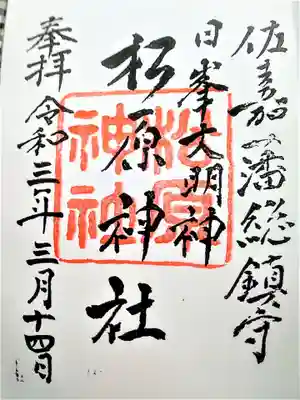 佐嘉藩総鎮守
日峯大明神
松原神社
奉拝 令和三年三月十四日
松原神社